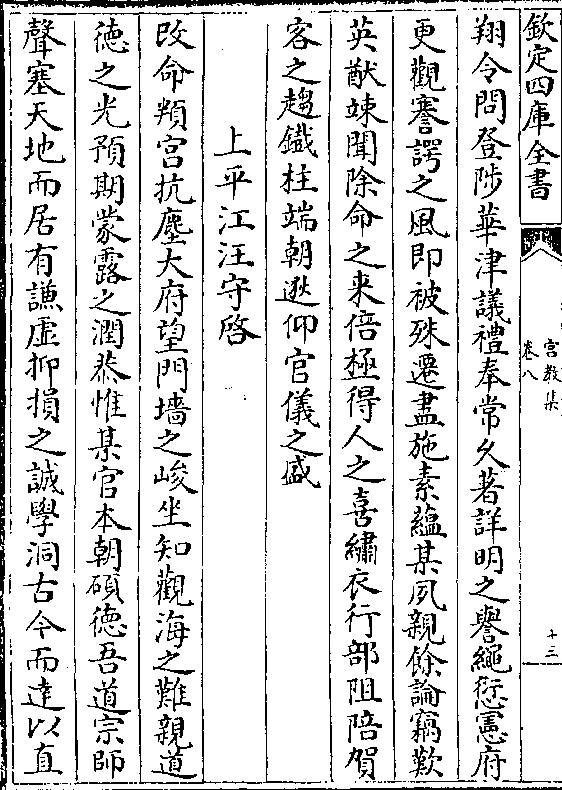 欽定四庫全書
宮教集
卷八
十三
翔令問登陟華津議禮奉常久著詳明之譽繩愆憲府
更觀謇諤之風即被殊遷盡施素蘊某夙親餘論竊歎
英猷竦聞除命之来倍極得人之喜繡衣行部阻陪賀
客之趨鐵柱端朝逖仰官儀之盛
上平江汪守啓
改命頖宮抗塵大府望門墻之峻坐知觀海之難親道
徳之光預期蒙露之潤恭惟某官本朝碩徳吾道宗師
聲塞天地而居有謙虚抑損之誠學洞古今而達以直